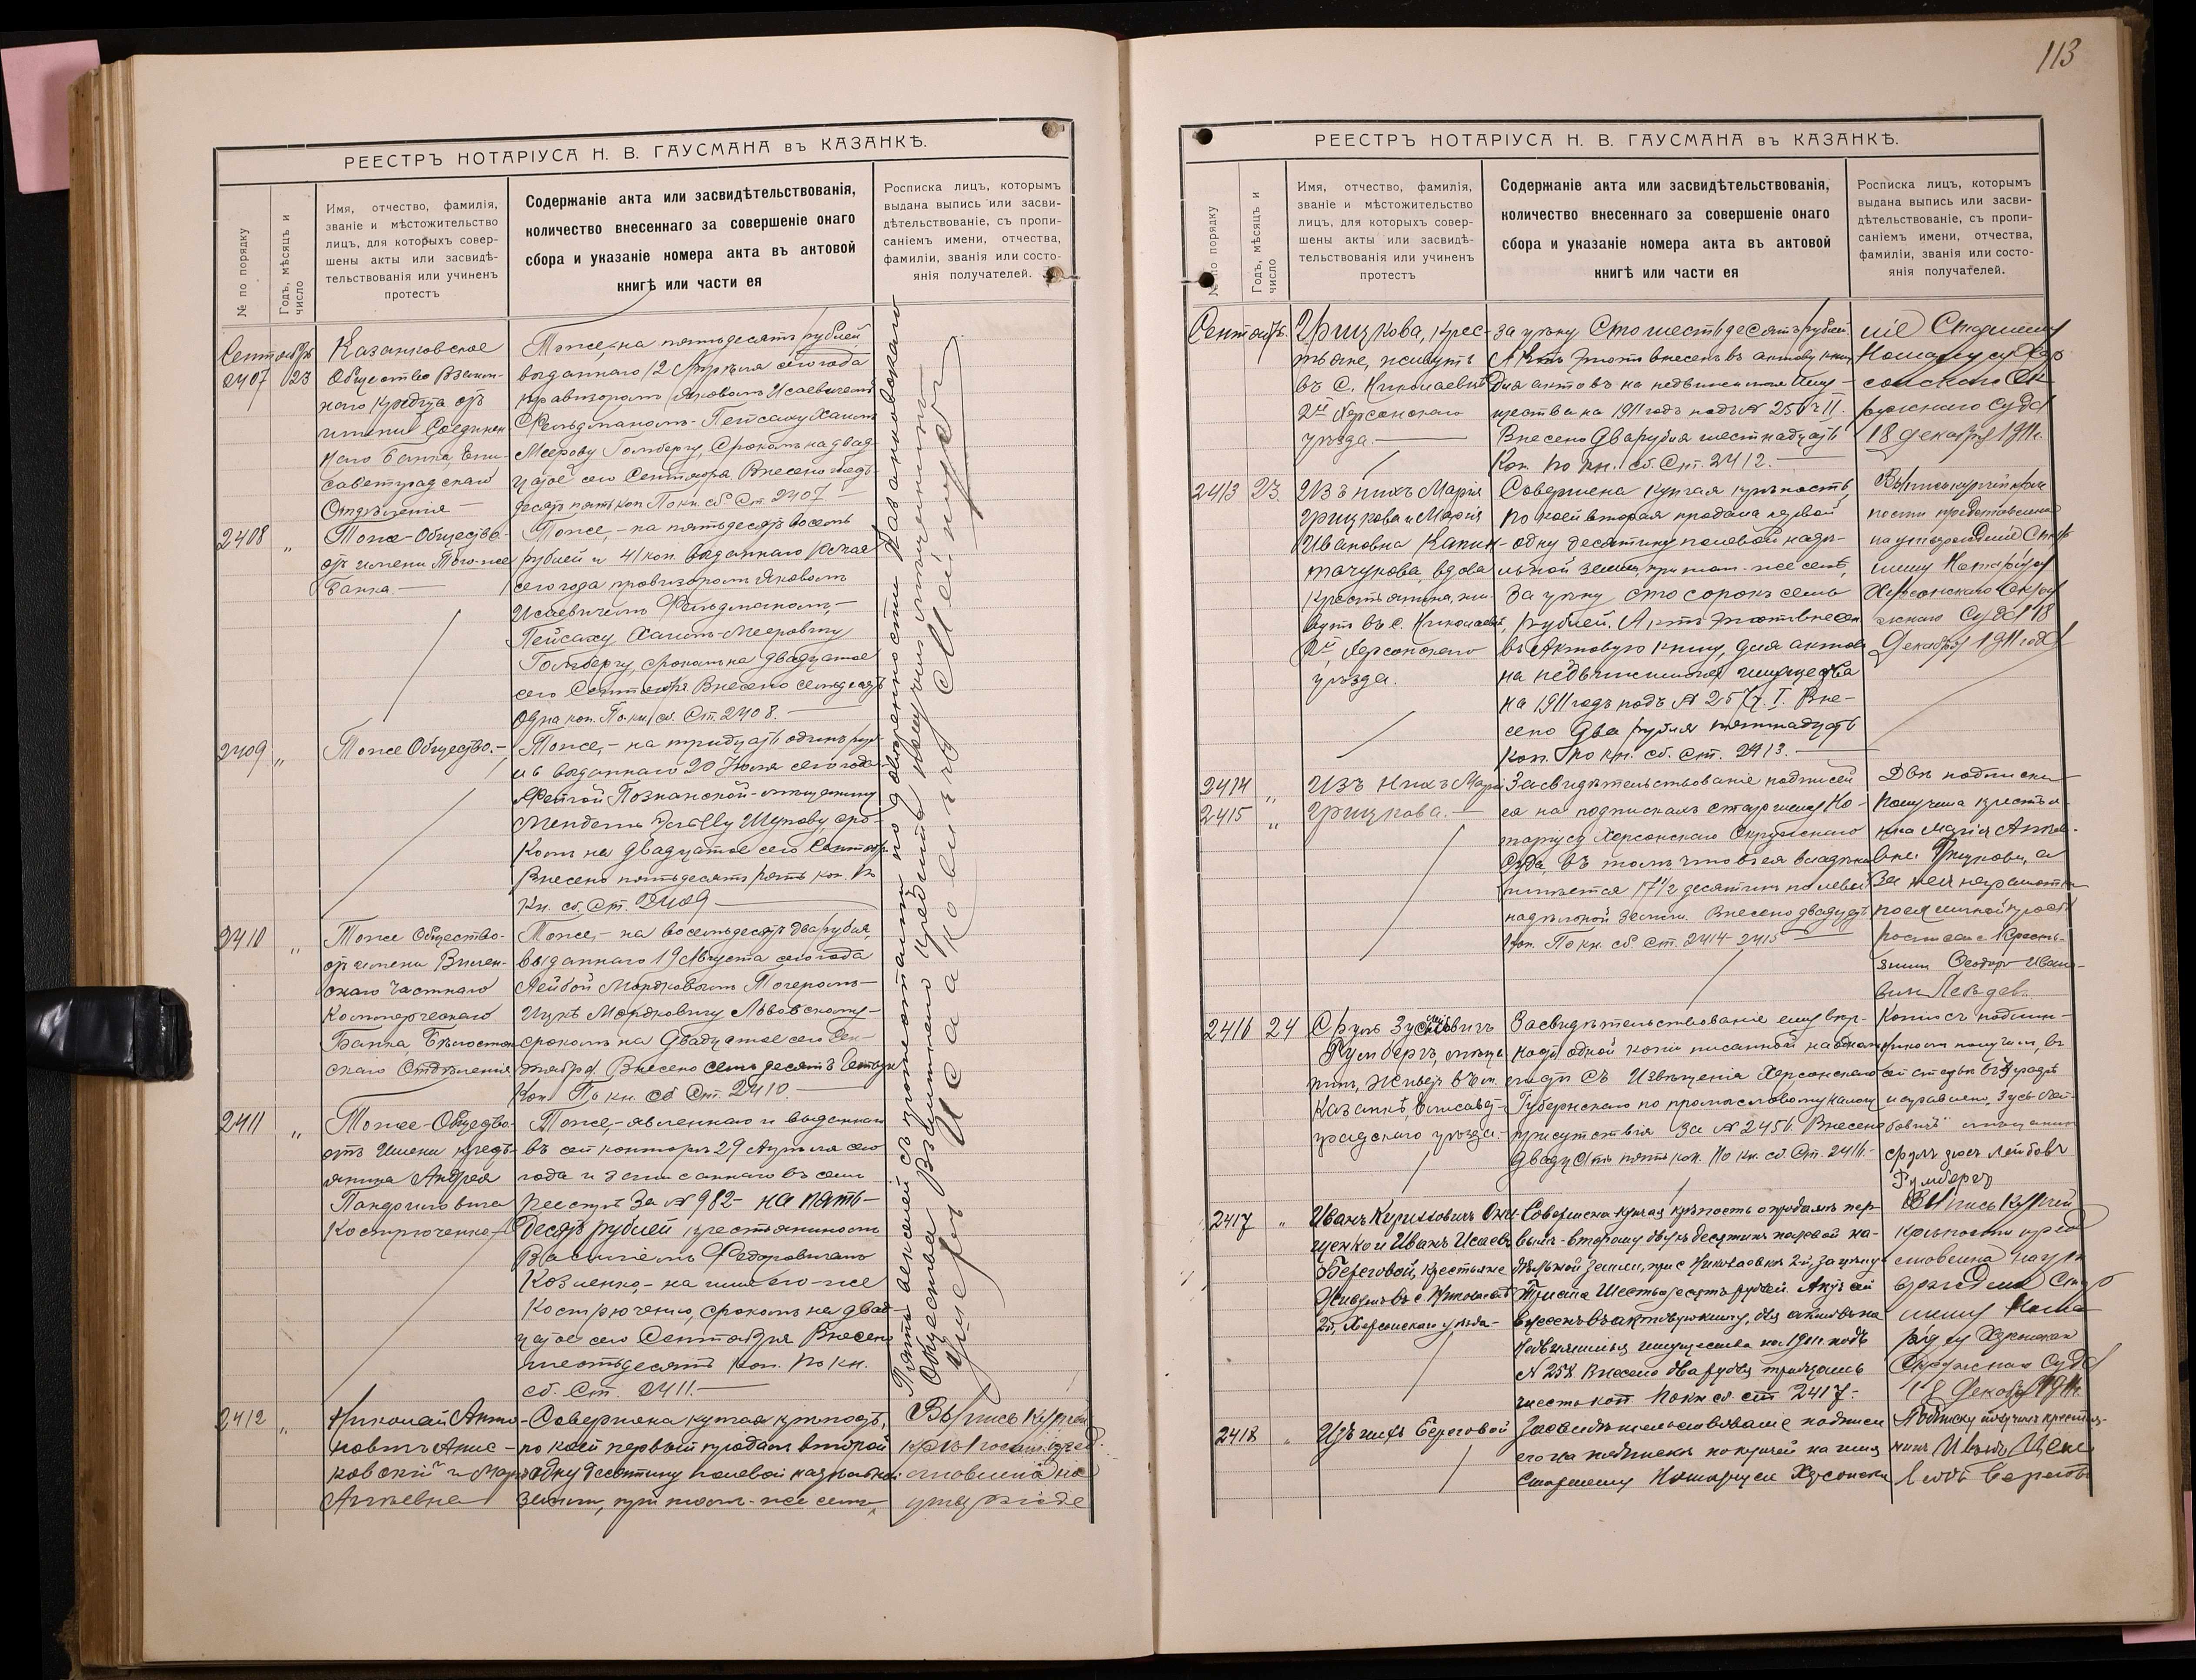 113
РЕЕСТРЪ НОТАРІУСА Н. В. ГАУСМАНА въ КАЗАНКѢ.
№ по порядку
Годъ, мѣсяцъ и
число
Имя, отчество, фамилія,
званіе и мѣстожительство
лицъ, для которыхъ совер-
шены акты или засвидѣ-
тельствованія или учиненъ
протестъ
Содержаніе акта или засвидѣтельствованія,
количество внесеннаго за совершеніе онаго
сбора и указаніе номера акта въ актовой
книгѣ или части ея
Росписка лицъ, которымъ
выдана выпись или засви-
дѣтельствованіе, съ пропи-
саніемъ имени, отчества,
фамиліи, званія или состо-
янія получателей.
Сентябрь
2407 23
Казанковское
Общество Взаим-
наго Кредита отъ
имени Соединен
наго Банка, Ели-
саветградскаго
Отдѣленія
Тоже, на пятьдесятъ рублей
выданнаго 12 Апрѣля сего года
провизоромъ Яковомъ Исаевичемъ
Фельдманомъ Пейсаху Хаимъ
Меерову Гольбергу, срокомъ на двад-
цатое сего Сентября. Внесено семь-
десятъ пять коп. По кн. сб. Ст. 2407
2408 "
Тоже Общество
отъ имени Того-же
Банка.
Тоже, - на пятьдесятъ восемь
рублей и 41 коп. выданнаго 10 Мая
сего года провизоромъ Яковомъ
Исаевичемъ Фельдманомъ, -
Пейсаху Хаимъ-Мееровичу
Гольбергу, срокомъ на двадцатое
сего Сентября. Внесено семьдесятъ
одна коп. По кн. сб. Ст. 2408.
2409 "
Тоже Общество. -
Тоже, - на тридцать одинъ руб-
ль выданнаго 20 Іюля сего года
Познанской - мѣщанину
Менделю Шупову, сро-
комъ на двадцатое сего Сентября
Внесено пятьдесятъ пять коп. По
кн. сб. Ст. 2409
2410 "
Тоже Общество
отъ имени Вилен-
скаго Частнаго
Коммерческаго
Банка, Бѣлосток-
скаго Отдѣленія
Тоже, - на восемьдесятъ два рубля,
выданнаго 19 Августа сего года
Лейбой Мордковымъ Тогеромъ
Ицкѣ Мордковичу Львовскому -
срокомъ на двадцатое сего Сен-
тября. Внесено семьдесятъ четыре
коп. По кн. сб. Ст. 2410.
2411 "
Тоже Общество
отъ имени крестъ-
янина Андрея
Пандориловича
Кострюченко
Тоже, - явленнаго и выданнаго
въ сей конторѣ 29 Апрѣля сего
года и записаннаго въ семъ
реестрѣ за № 982 - на пять-
десятъ рублей крестьяниномъ
Василіемъ Федоровичемъ
Козленко, - на имя его-же
Кострюченко, срокомъ на двад-
цатое сего Сентября. Внесено
шестьдесятъ коп. По кн.
сб. Ст. 2411.
Пять векселей съ протестами по довѣренности Казанковскаго
Общества Взаимнаго Кредита получилъ мѣщанинъ
Исааковичъ
2412 "
Николай Анто-
новичъ Анис-
ковскій и Марія
Антоновна
Совершена купчая крѣпость,
по коей первый продалъ второй
одну десятину полевой надѣльной
земли, при томъ-же селѣ,
Выпись купчей
крѣпости пред-
ставлена на
утвержде
РЕЕСТРЪ НОТАРІУСА Н. В. ГАУСМАНА въ КАЗАНКѢ.
№ по порядку
Годъ, мѣсяцъ и
число
Имя, отчество, фамилія,
званіе и мѣстожительство
лицъ, для которыхъ совер-
шены акты или засвидѣ-
тельствованія или учиненъ
протестъ
Содержаніе акта или засвидѣтельствованія,
количество внесеннаго за совершеніе онаго
сбора и указаніе номера акта въ актовой
книгѣ или части ея
Росписка лицъ, которымъ
выдана выпись или засви-
дѣтельствованіе, съ пропи-
саніемъ имени, отчества,
фамиліи, званія или состо-
янія получателей.
Сентябрь
Грицкова, крес-
тьяне, живутъ
въ с. Николаевкѣ
2й Херсонскаго
уѣзда.
за цѣну сто шестьдесятъ рублей.
Актъ этотъ внесенъ въ актову книгу
для актовъ на недвижимыя иму-
щества на 1911 годъ подъ № 256 ч II.
Внесено два рубля шестнадцать
коп. По кн. сб. Ст. 2412.
ніе Старшему
Нотаріусу Хер
сонскаго Ок
ружнаго Суда
18 декабря 1911 г.
2413 23.
Изъ нихъ Марія
Грицкова и Марія
Ивановна Капин-
тачукова, вдова
крестьянина, жи-
вутъ въ с. Николаевкѣ,
2й, Херсонскаго
уѣзда.
Совершена купчая крѣпость,
по коей вторая продала первой
одну десятину полевой надѣ-
льной земли, при томъ-же селѣ,
за цѣну сто сорокъ семь
рублей. Актъ этотъ внесен
въ актовую книгу, для актовъ
на недвижимыя имущества
на 1911 годъ подъ № 257 ч. I. Вне-
сено два рубля пятнадцать
коп. По кн. сб. Ст. 2413.
Выпись купчей крѣ
пости представлена
на утвержденіе Стар
шему Нотаріусу
Херсонскаго Окру
жнаго Суда 18
Декабря 1911 года
2414 "
2415 "
Изъ нихъ Марія
Грицкова. -
Засвидѣтельствованіе подписей
ея на подпискахъ старшему Но-
таріусу Херсонскаго Окружнаго
Суда, въ томъ что въ ея владѣніи
имѣется 17 1/2 десятинъ полевой
надѣльной земли. Внесено двадцать
коп. По кн. сб. Ст. 2414-2415
Двѣ подписки
получила крестья-
нка Марія Анто-
вна Грицкова, а
за нея неграмотн
по ея личной просьбѣ
росписался кресть-
янинъ Феодоръ Ивано-
вичъ Лебедев
2416 24
Сруль Зусь Лейбовичъ
Румбергъ, мѣща-
нинъ, живетъ въ м.
Казанкѣ, Елисавет-
градскаго уѣзда.
Засвидѣтельствованіе ему вѣр-
ности одной копіи писанной на одномъ
листѣ съ Извѣщенія Херсонскаго
Губернскаго по промысловому налогу
присутствія за № 2456. Внесено
двадцать пять коп. По кн. сб. Ст. 2416.
Копію съ подлин-
никомъ получилъ, въ
сей статьѣ въ 3 графѣ
исправлено, Зусь Лей-
бовичъ мѣщанинъ
Сруль Зусь Лейбовъ
Румбергъ
2417 "
Иванъ Кирилловичъ Они-
щенко и Иванъ Исаевъ
Береговой, крестьяне
живутъ въ с. Николаевкѣ
2й, Херсонскаго уѣзда -
Совершена купчая крѣпость о продажѣ пер-
вымъ - второму двухъ десятинъ полевой на-
дѣльной земли, при с. Николаевкѣ 2й, за цѣну
Триста Шестьдесятъ рублей. Актъ сей
внесенъ въ актовую книгу, для актовъ на
недвижимыя имущества на 1911 г. подъ
№ 258. Внесено два рубля тридцать
шесть коп. По кн. сб. ст. 2417.
Выпись купчей
крѣпости пред
ставлена на утв
ержденіе Стар
шему Нота
ріусу Херсонскаго
Окружнаго Суда
18 Декабря 1911 г.
2418 "
Изъ нихъ Береговой
Засвидѣтельствованіе подписи
его на подпискѣ по купчей на имя
Старшему Нотаріусу Херсонска
Подписку получилъ крестья-
нинъ Иванъ Исае
вичъ Берегово